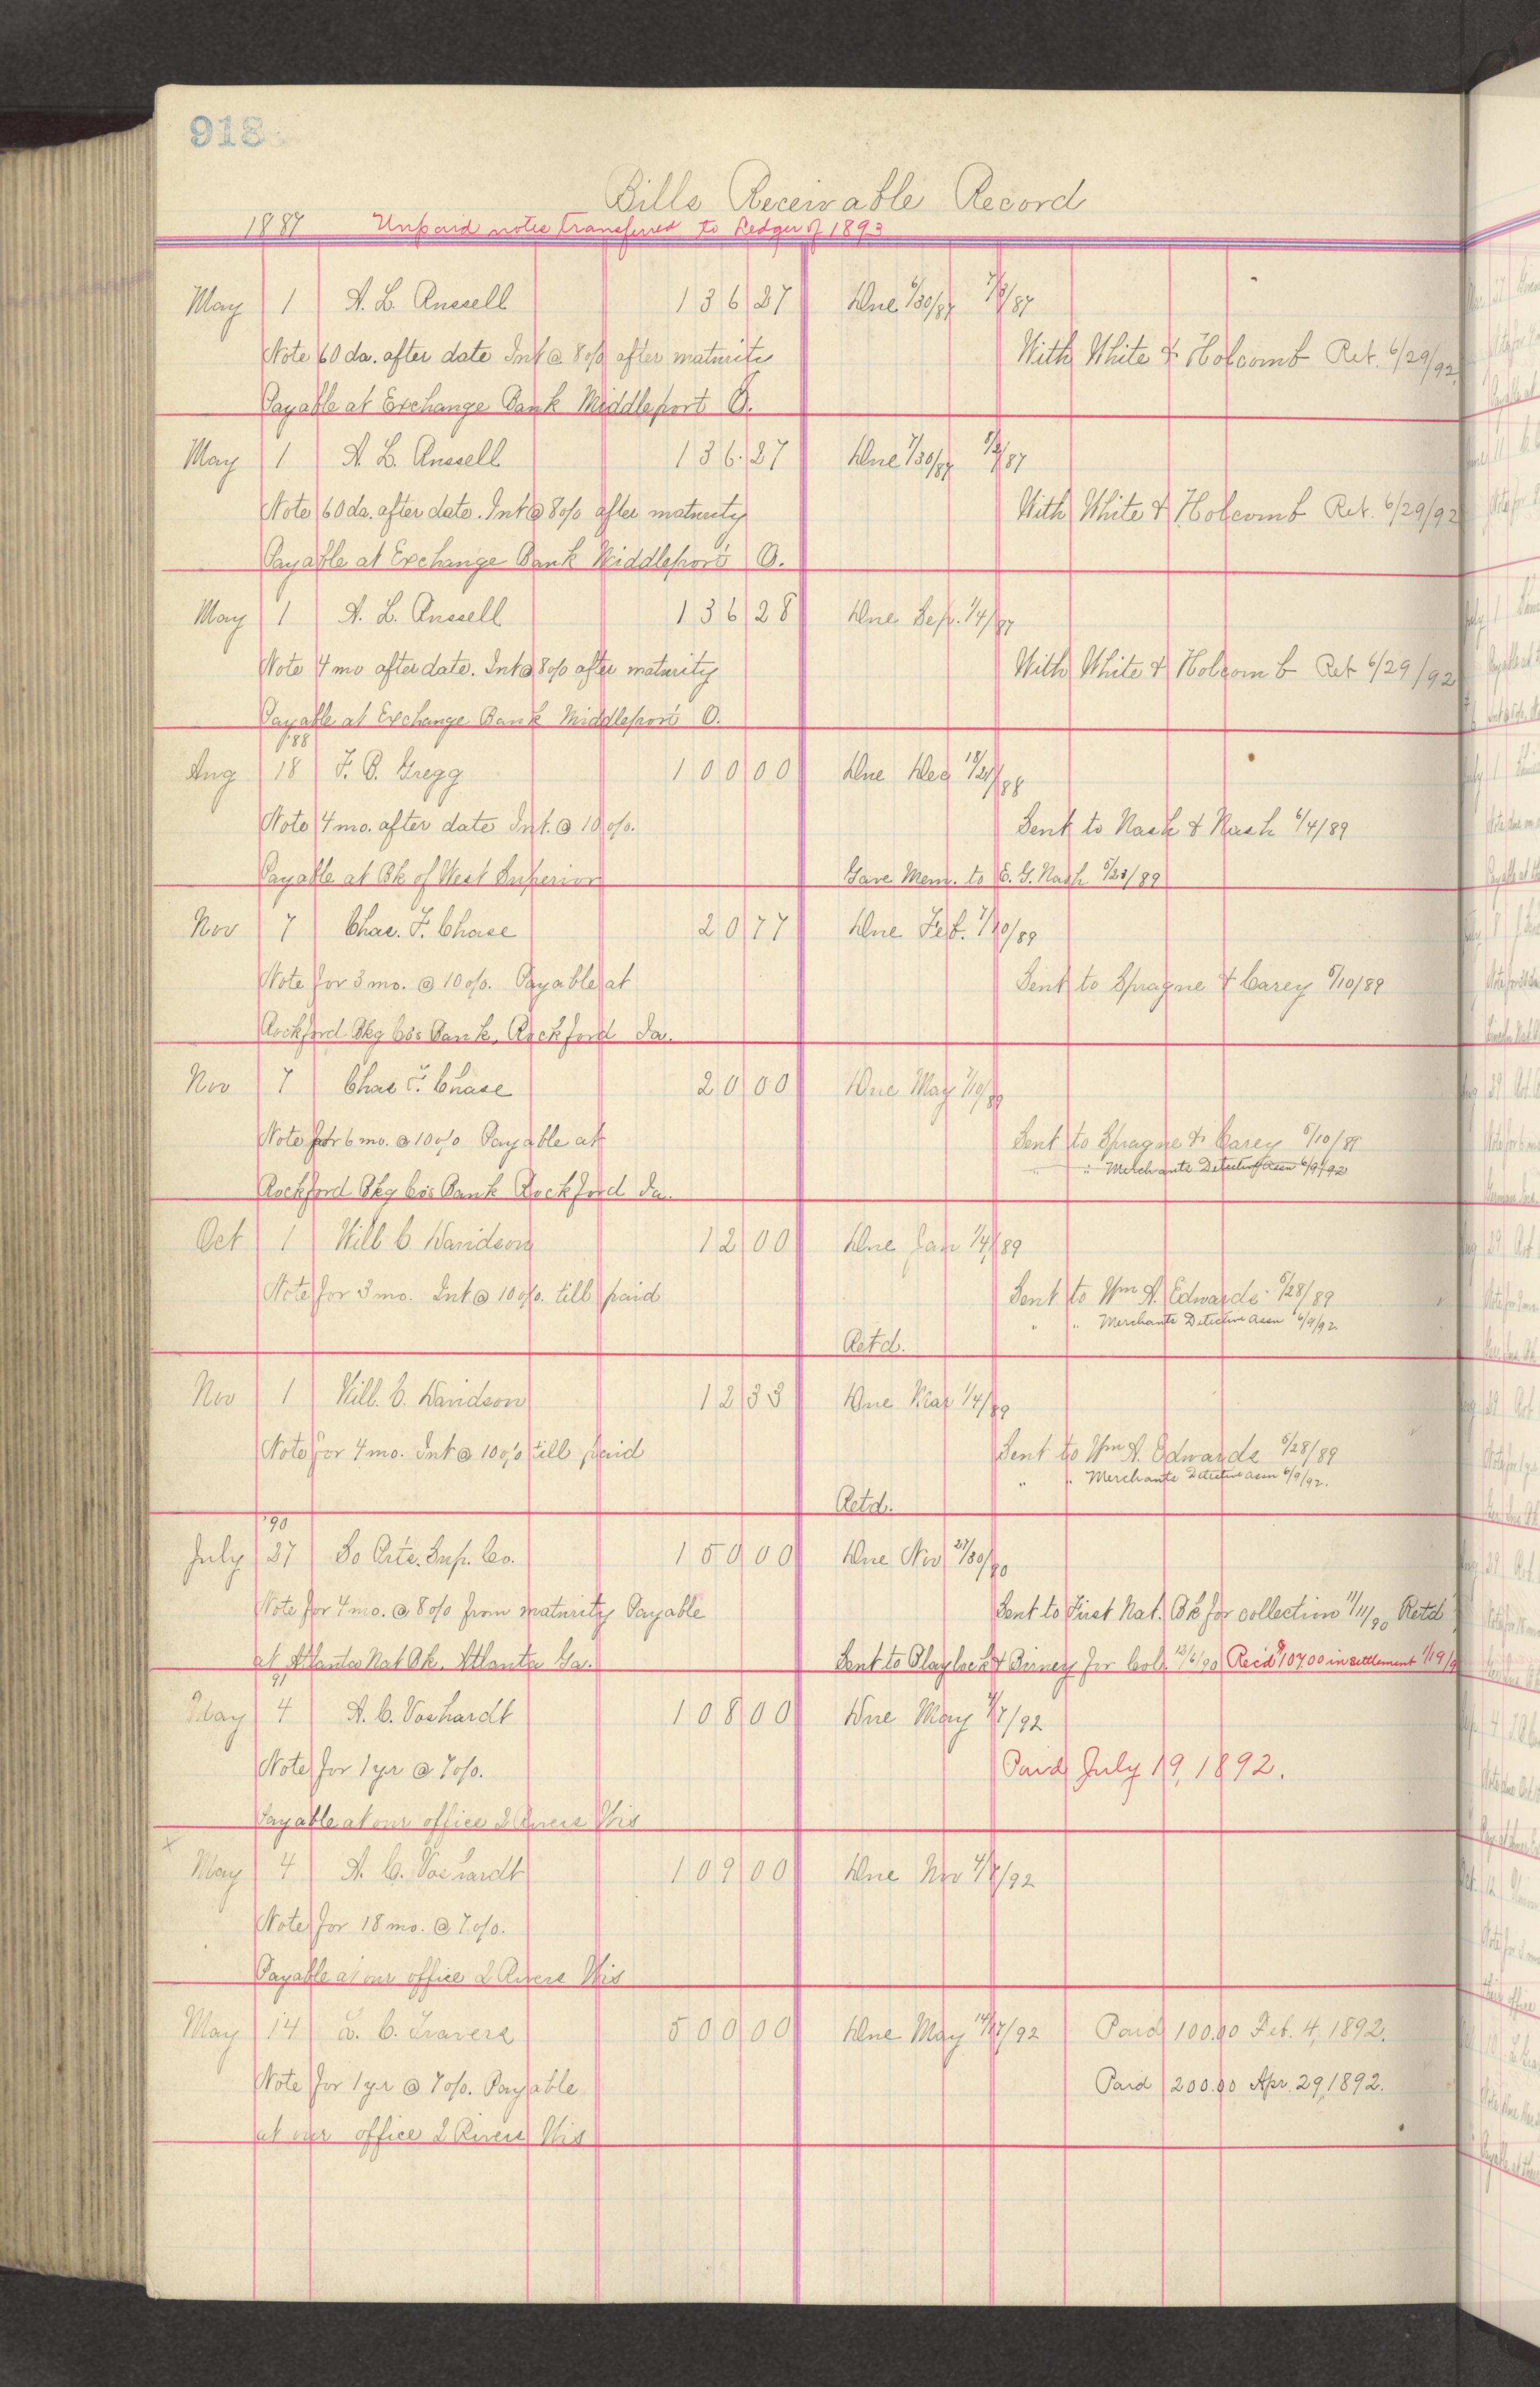 918
Bills Receivable Record
1887 Unpaid notes transferred to Ledger of 1893
May 1 A. L. Anssell 136 27 Due 6/30/87 7/3/87
Note 60 da. after date Int @ 8 o/o after maturity With White & Holcomb Ret. 6/29/92
Payable at Exchange Bank Middleport O.
May 1 A. L. Anssell 136.27 Due 7/30/87 8/2/87
Note 60 da. after date. Int @ 8 o/o after maturity With White & Holcomb Ret. 6/29/92
Payable at Exchange Bank Middleport O.
May 1 A. L. Anssell 136 28 Due Sep. 1/4/87
Note 4 mo after date. Int @ 8 o/o after maturity With White & Holcomb Ret 6/29/92
Payable at Exchange Bank Middleport O.
'88
Aug 18 F. B. Gregg 100 00 Due Dec 18/21/88
Note 4 mo. after date Int. @ 10 o/o. Sent to Nash & Nash 6/4/89
Payable at Bk of West Superior Gave Mem. to E. G. Nash 5/23/89
Nov 7 Chas. F. Chase 20 77 Due Feb. 7/10/89
Note for 3 mo. @ 10 o/o. Payable at Sent to Sprague & Carey 5/10/89
Rockford Bkg Co's Bank, Rockford Ia.
Nov 7 Chas F. Chase 20 00 Due May 7/10/89
Note for 6 mo. @ 10 o/o Payable at Sent to Sprague & Carey 5/10/89
" " Merchants Detective Assn 6/9/92
Rockford Bkg Co's Bank Rockford Ia.
Oct 1 Will C Davidson 12 00 Due Jan 1/4/89
Note for 3 mo. Int @ 10 o/o. till paid Sent to Wm A. Edwards 5/28/89
" " Merchants Detective Assn 6/9/92
Retd.
Nov 1 Will. C. Davidson 12 33 Due Mar 1/4/89
Note for 4 mo. Int @ 10 o/o till paid Sent to Wm A. Edwards 5/28/89
" " Merchants Detective Assn 6/9/92.
Retd.
'90
July 27 So Arts. Sup. Co. 150 00 Due Nov 27/30/90
Note for 4 mo. @ 8 o/o from maturity Payable Sent to First Nat. Bk for collection 11/11/90 Retd
at Atlanta Nat Bk. Atlanta Ga. Sent to Blaylock & Birney for Col. 12/6/90 Rec'd 107.00 in settlement 1/19/9
91
May 4 A. C. Voshardt 108 00 Due May 4/7/92
Note for 1 yr @ 7 o/o. Paid July 19, 1892.
Payable at our office 2 Rivers Wis
x
May 4 A. C. Voshardt 109 00 Due Nov 4/7/92
Note for 18 mo. @ 7 o/o.
Payable at our office 2 Rivers Wis
May 14 C. Travers 500 00 Due May 14/17/92 Paid 100.00 Feb. 4, 1892.
Note for 1 yr @ 7 o/o. Payable Paid 200.00 Apr. 29, 1892.
at our office 2 Rivers Wis